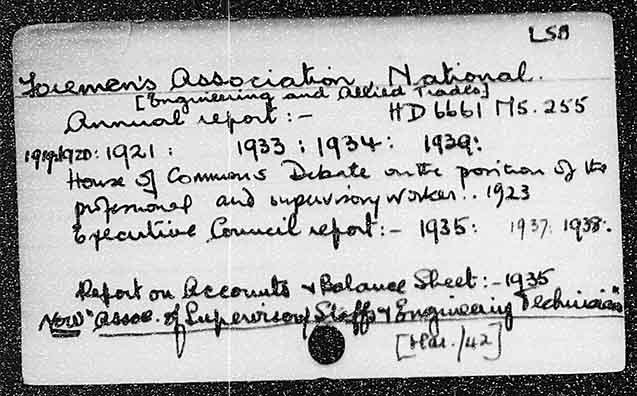 LSB
Foremen's Association, National.
[Engineering and Allied Trades]
Annual report :- HD 6661 M5.255
1919: 1920: 1921 : 1933 : 1934 : 1939:
House of Commons Debate on the position of the
professional and supervisory worker.. 1923
Executive Council report :- 1935: 1937: 1938:.
Report on Accounts & Balance Sheet :- 1935
Now "Assoc. of Supervisory Staffs & Engineering Technicians"
[Mar./42]